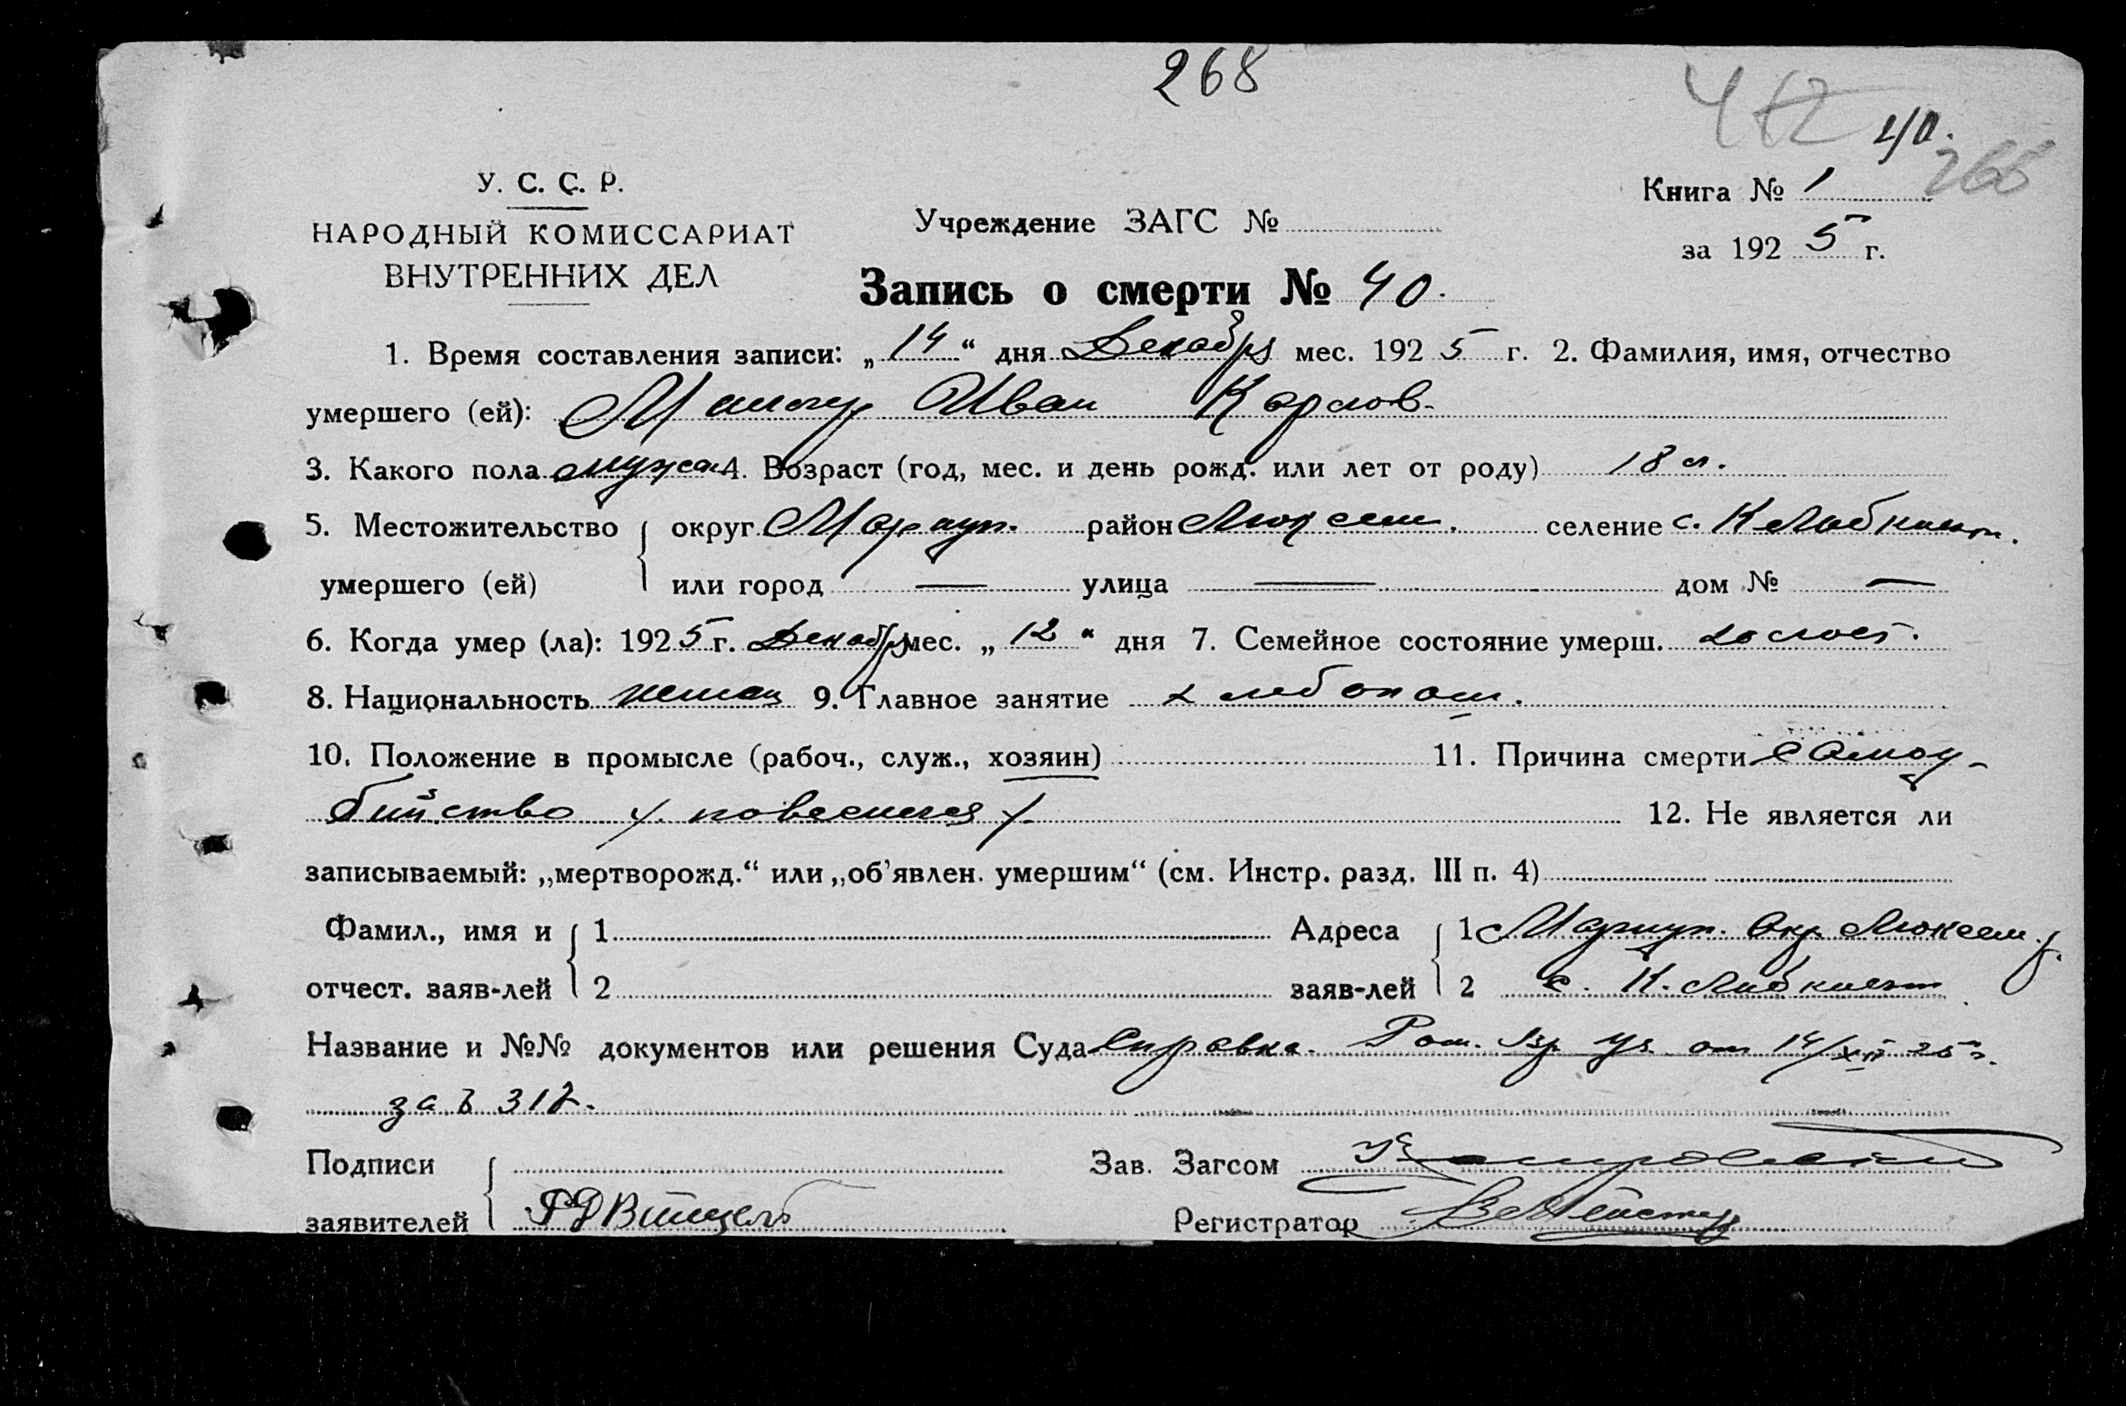 268
412 40.
268
У. С. С. Р.
НАРОДНЫЙ КОМИССАРИАТ
ВНУТРЕННИХ ДЕЛ
Учреждение ЗАГС №
Книга № 1
за 1925 г.
Запись о смерти № 40.
1. Время составления записи: „14“ дня Декабря мес. 1925 г. 2. Фамилия, имя, отчество
умершего (ей): Иван Карлов.
3. Какого пола мужск 4. Возраст (год, мес. и день рожд. или лет от роду) 18 л.
5. Местожительство умершего (ей) { округ Мариуп. район Люксем. селение с. К Либкнехт.
или город — улица — дом № —
6. Когда умер (ла): 1925 г. Декабря мес. „12“ дня 7. Семейное состояние умерш. холост.
8. Национальность немец 9. Главное занятие хлебопаш.
10. Положение в промысле (рабоч., служ., хозяин) 11. Причина смерти самоу-
бийство /повесился/.
12. Не является ли
записываемый: „мертворожд.“ или „об'явлен. умершим“ (см. Инстр. разд. III п. 4)
Фамил., имя и отчест. заяв-лей { 1 2
Адреса заяв-лей { 1 Мариуп. Окр Люксем. р.
2 с. К. Либкнехт
Название и №№ документов или решения Суда Справка. от 14/XII 25 г.
за № 317.
Подписи заявителей {
Зав. Загсом
Регистратор